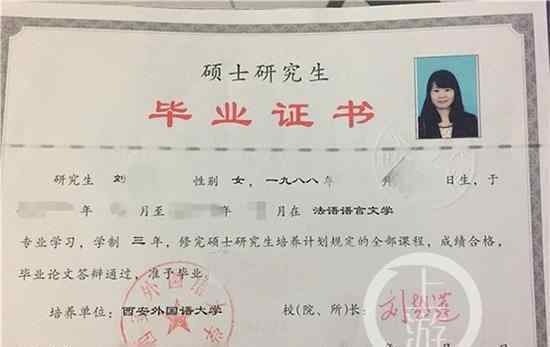 硕士研究生
毕业证书
研究生 刘 性别 女, 一九八八年 月 日生, 于
年 月至 年 月在 法语语言文学
专业学习, 学制 三 年, 修完硕士研究生培养计划规定的全部课程, 成绩合格,
毕业论文答辩通过, 准予毕业。
培养单位: 西安外国语大学 校(院、所)长:
上游